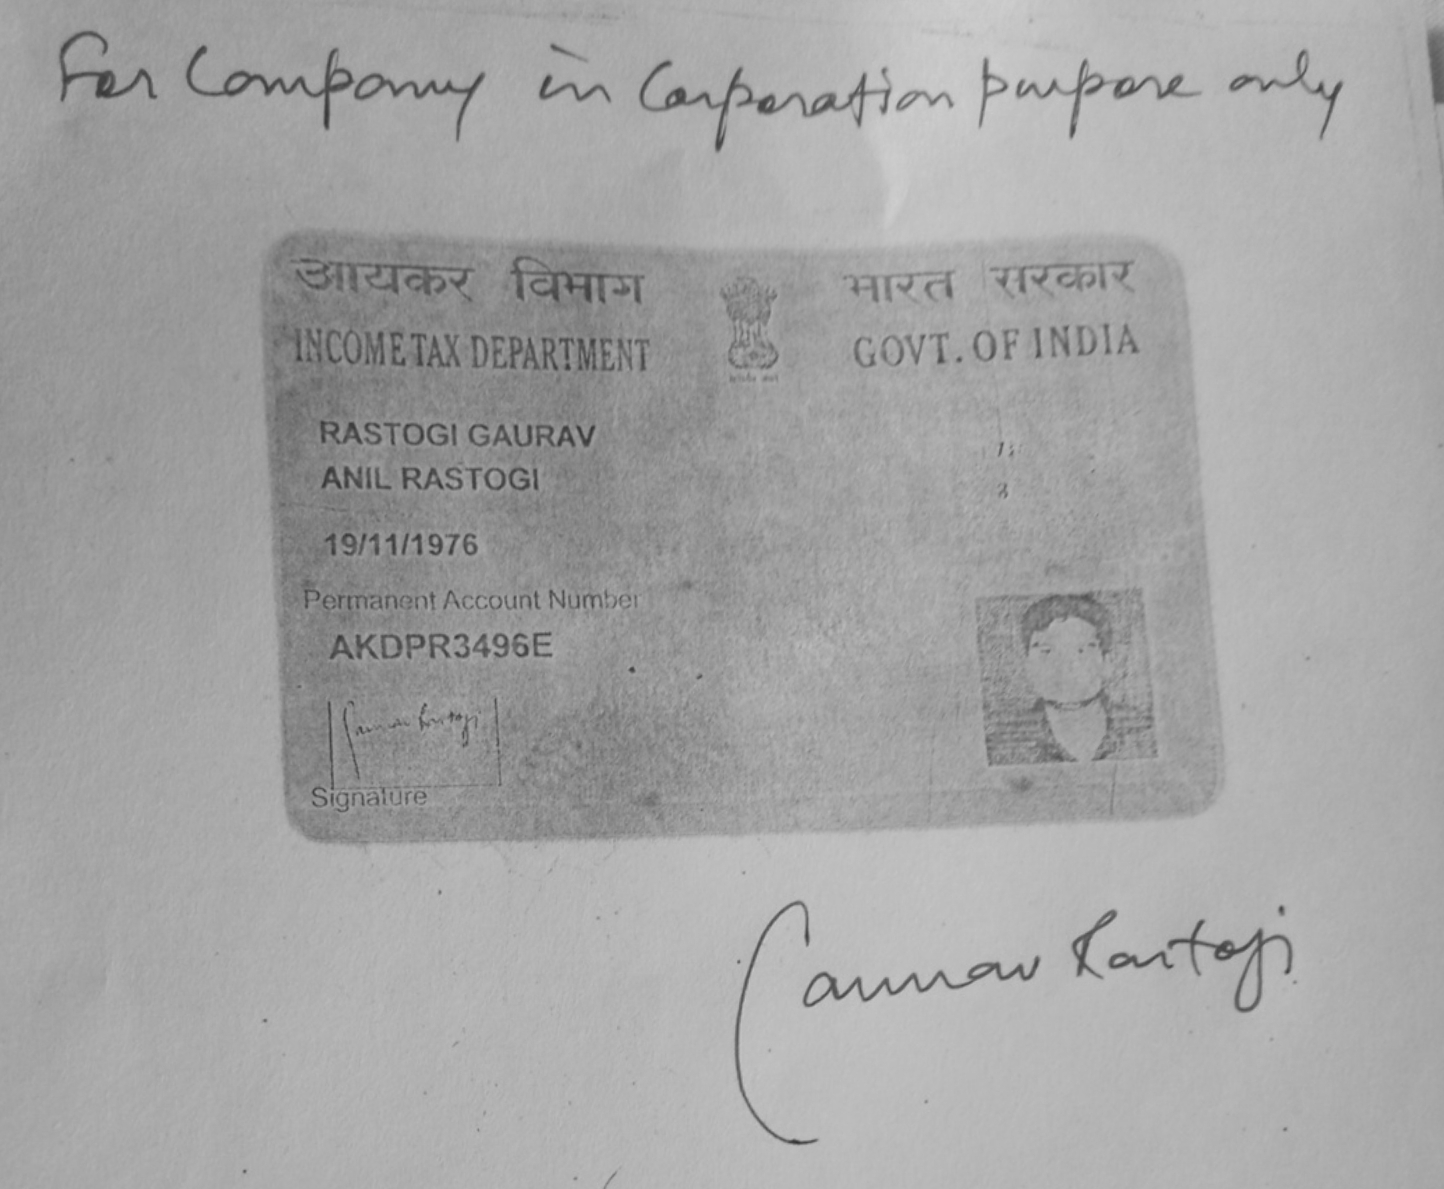 For Company in Corporation purpose only
आयकर विभाग भारत सरकार
INCOME TAX DEPARTMENT GOVT. OF INDIA
RASTOGI GAURAV
ANIL RASTOGI
19/11/1976
Permanent Account Number
AKDPR3496E
Gaurav Rastogi
Signature
Gaurav Rastogi